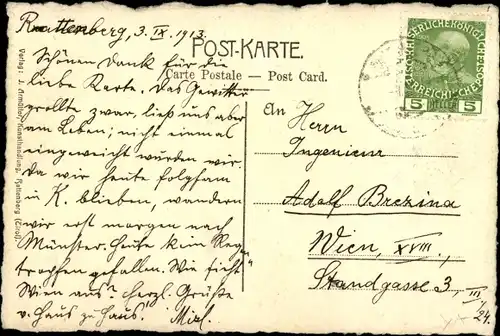 Rattenberg, 3. IX. 1913.
POST-KARTE.
Carte Postale — Post Card.
Schönen Dank für die
liebe Karte. Das Gewitter
grollte zwar, ließ uns aber
am Leben; nicht einmal
eingeweicht wurden wir.
Da wir heute folgsam
in K. blieben, wandern
wir erst morgen nach
Münster. Heute kein Regen-
tropfen gefallen. Wie sieht
Wien aus? Herzl. Grüße
v. Haus zu Haus! Mizl.
Verlag: J. Armütter, Kunsthandlung, Rattenberg (Tirol).
KAISERLICHE KÖNIGLICHE
ÖSTERREICHISCHE
5 HELLER 5
An Herrn
Ingenieur
Adolf Brezina
Wien, XVIII,
Standgasse 3, III/24.